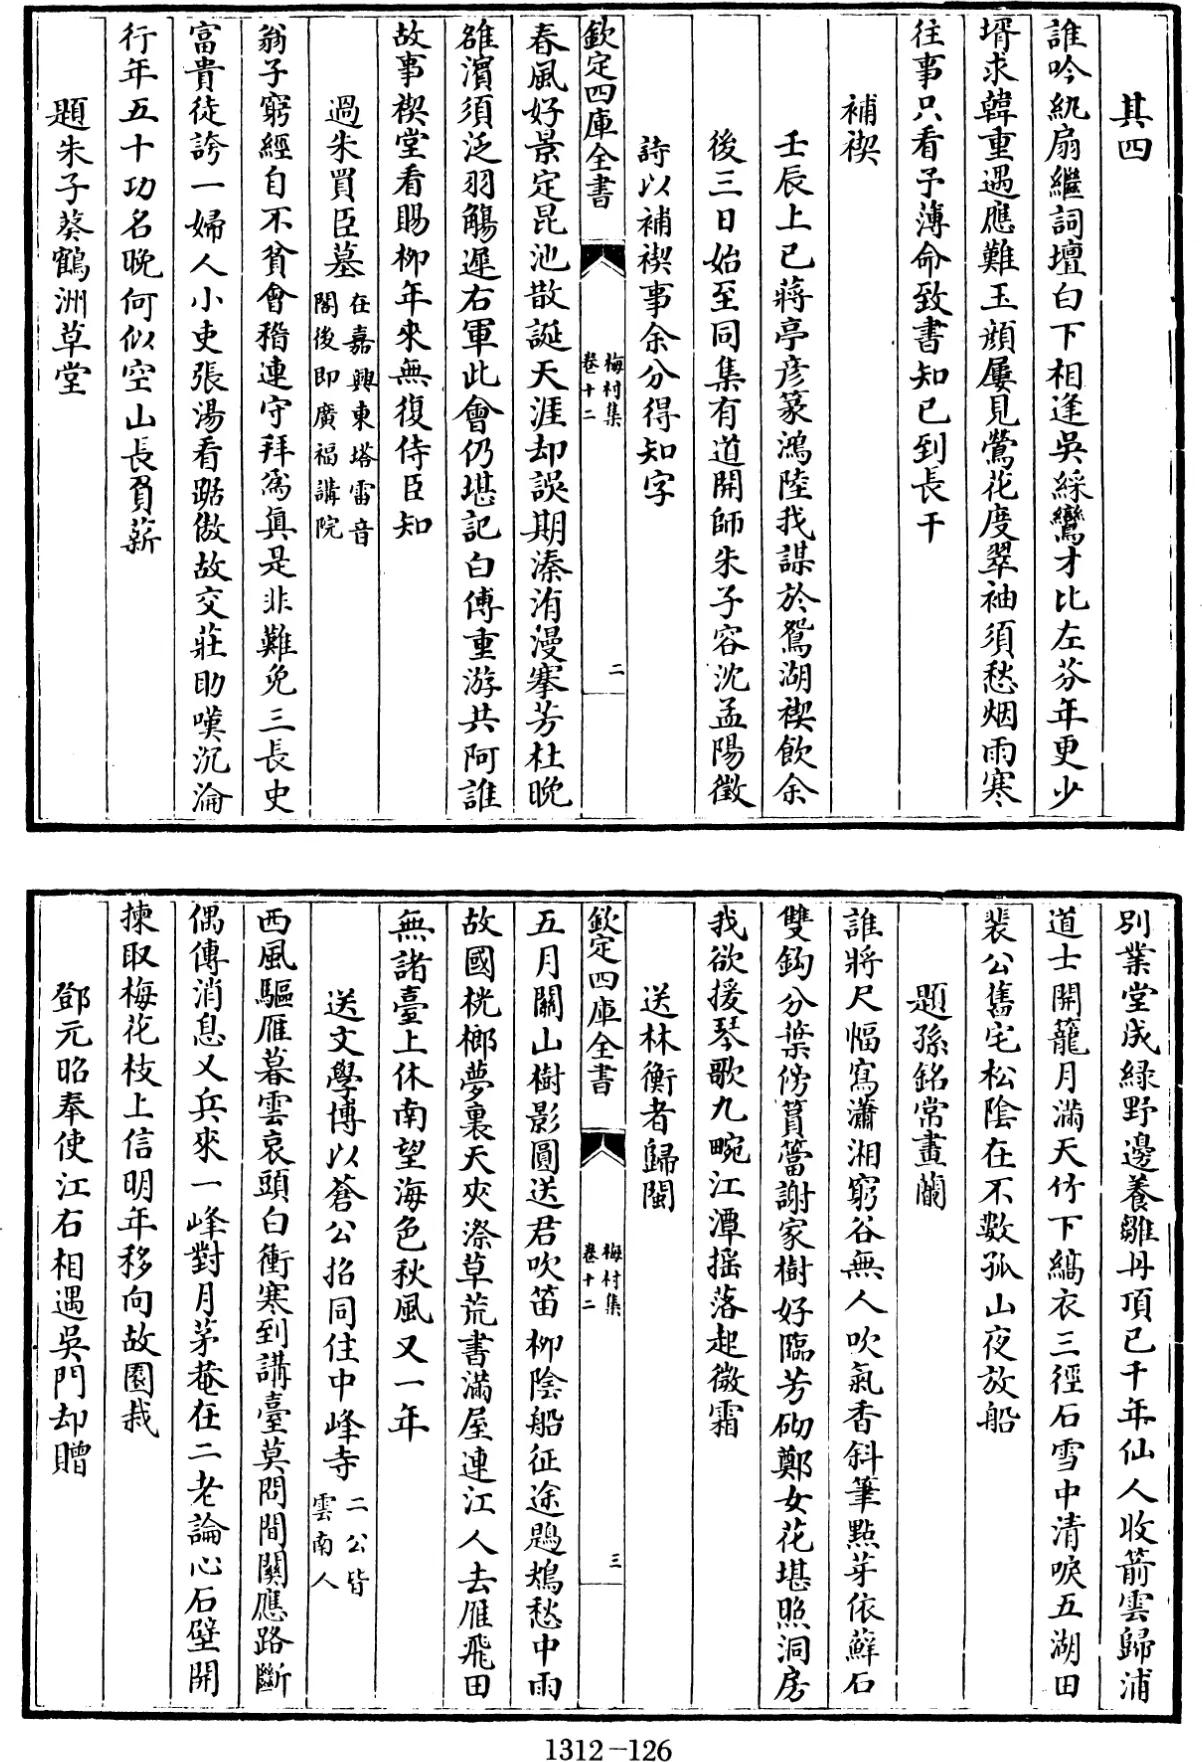 其四
誰吟紈扇繼詞壇白下相逢吳綵鸞才比左芬年更少
壻求韓重遇應難玉顔屢見鶯花度翠袖須愁烟雨寒
往事只看予薄命致書知已到長干
補禊
壬辰上已蔣亭彦篆鴻陸我謀於鴛湖禊飲余
後三日始至同集有道開師朱子容沈孟陽徵
詩以補禊事余分得知字
欽定四庫全書
梅村集
卷十二
二
春風好景定昆池散誕天涯却誤期溱洧漫搴芳杜晚
雒濵須泛羽觴遲右軍此會仍堪記白傅重游共阿誰
故事禊堂看賜柳年來無復侍臣知
過朱買臣墓
在嘉興東塔雷音
閣後即廣福講院
翁子窮經自不貧會稽連守拜爲真是非難免三長史
富貴徒誇一婦人小吏張湯看踞傲故交莊助嘆沉淪
行年五十功名晚何似空山長負薪
題朱子葵鶴洲草堂
別業堂成緑野邊養雛丹頂已千年仙人收箭雲歸浦
道士開籠月滿天竹下縞衣三徑石雪中清唳五湖田
裴公舊宅松陰在不數孤山夜放船
題孫銘常畫蘭
誰將尺幅寫瀟湘窮谷無人吹氣香斜筆㸃芽依蘚石
雙鈎分葉傍篔簹謝家樹好臨芳砌鄭女花堪照洞房
我欲援琴歌九畹江潭揺落起微霜
送林衡者歸閩
欽定四庫全書
梅村集
卷十二
三
五月關山樹影圓送君吹笛柳陰船征途鶗鴂愁中雨
故國桄榔夢裏天夾漈草荒書滿屋連江人去雁飛田
無諸臺上休南望海色秋風又一年
送文學博以蒼公招同住中峰寺
二公皆
雲南人
西風驅雁暮雲哀頭白衝寒到講臺莫問間關應路斷
偶傳消息又兵來一峰對月茅菴在二老論心石壁開
揀取梅花枝上信明年移向故園栽
鄧元昭奉使江右相遇吳門却贈
1312-126